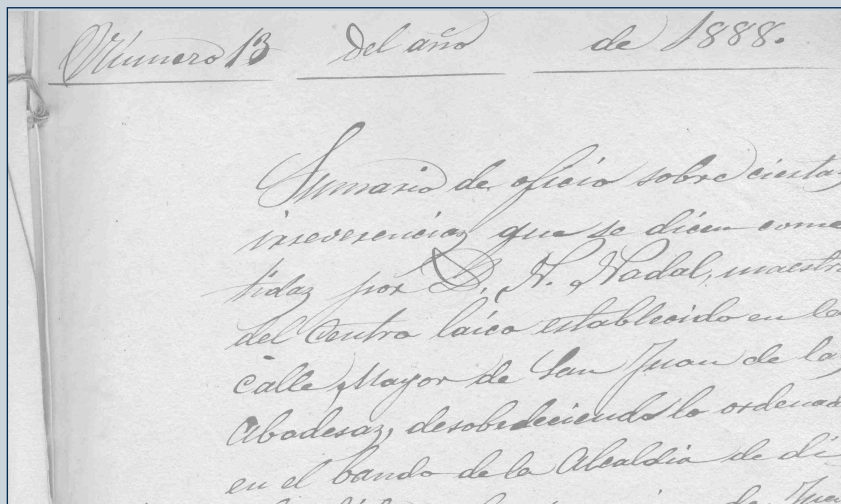 Número 13 del año de 1888.
Sumario de oficio sobre ciertas
irreverencias que se dicen come
tidas por D. N. Nadal, maestro
del Centro laico establecido en la
calle Mayor de San Juan de las
Abadesas, desobedeciendo lo ordenado
en el bando de la Alcaldia de di
de